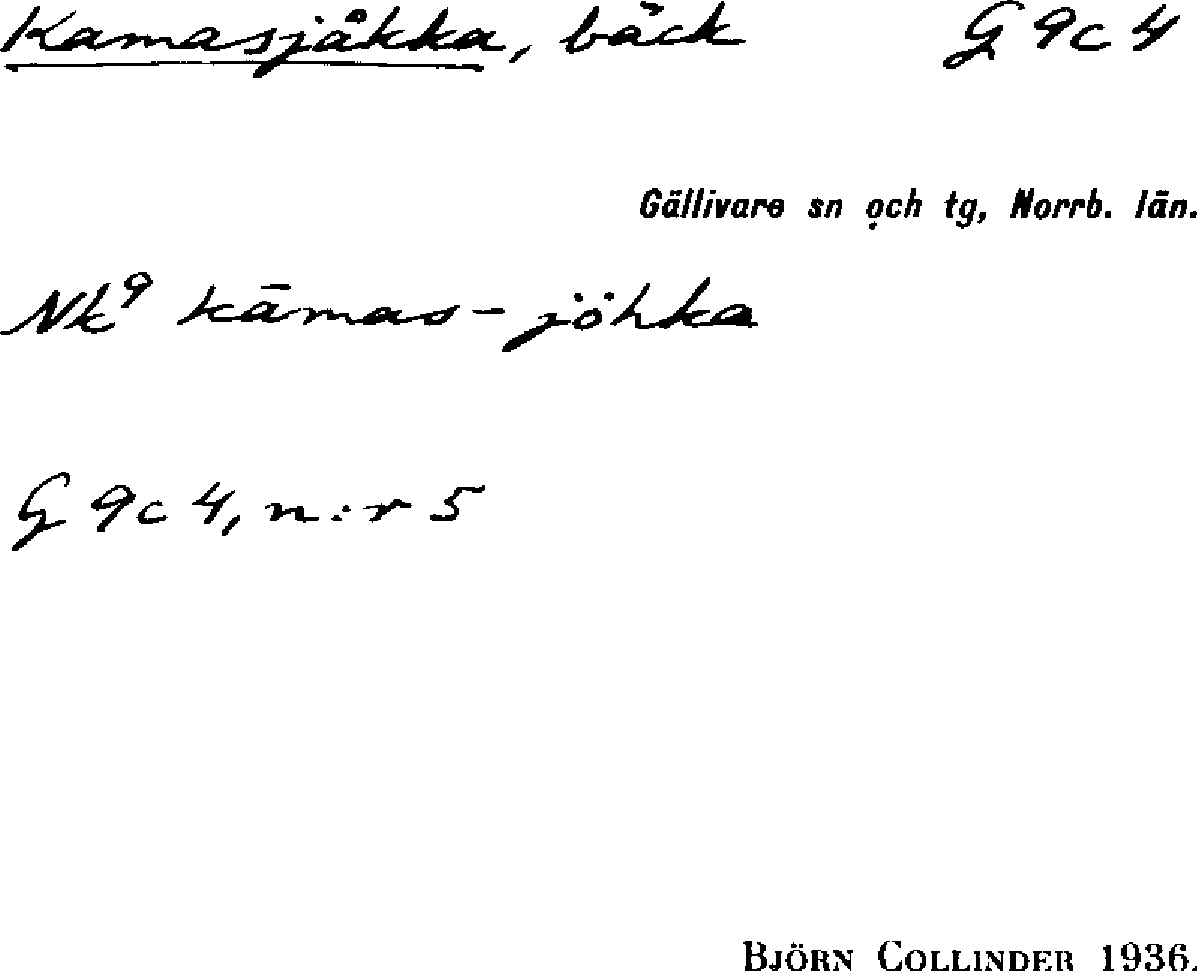 Kamasjåkka, bäck G 9c 4
Gällivare sn och tg, Norrb. län.
Nk⁹ kāmas-jöhka
G 9c 4, n:r 5
BJÖRN COLLINDER 1936.